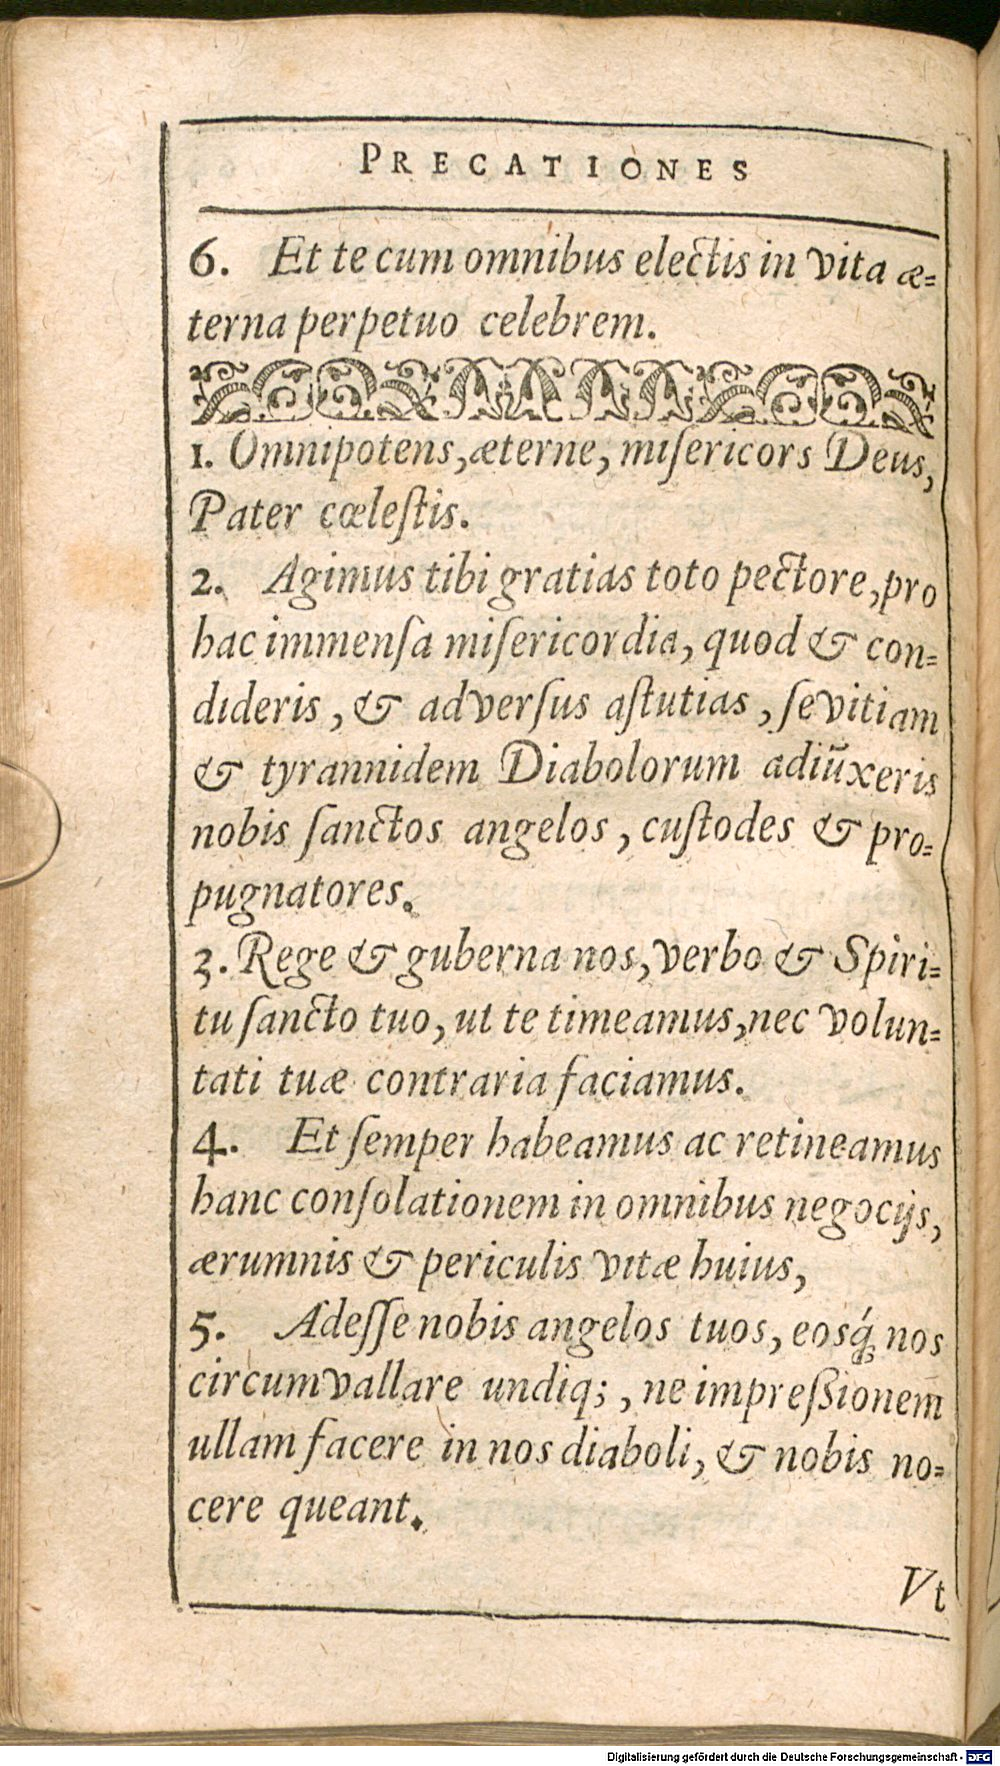 PRECATIONES
6. Et te cum omnibus electis in vita æ-
terna perpetuo celebrem.
1. Omnipotens, æterne, miſericors Deus,
Pater cœleſtis.
2. Agimus tibi gratias toto pectore, pro
hac immenſa miſericordia, quod & con-
dideris, & adverſus aſtutias, ſevitiam
& tyrannidem Diabolorum adiūxeris
nobis ſanctos angelos, cuſtodes & pro-
pugnatores.
3. Rege & guberna nos, verbo & Spiri-
tu ſancto tuo, ut te timeamus, nec volun-
tati tuæ contraria faciamus.
4. Et ſemper habeamus ac retineamus
hanc conſolationem in omnibus negocijs,
ærumnis & periculis vitæ huius,
5. Adeſſe nobis angelos tuos, eosq́; nos
circumvallare undiq;, ne impreßionem
ullam facere in nos diaboli, & nobis no-
cere queant.
Vt
Digitalisierung gefördert durch die Deutsche Forschungsgemeinschaft - DFG